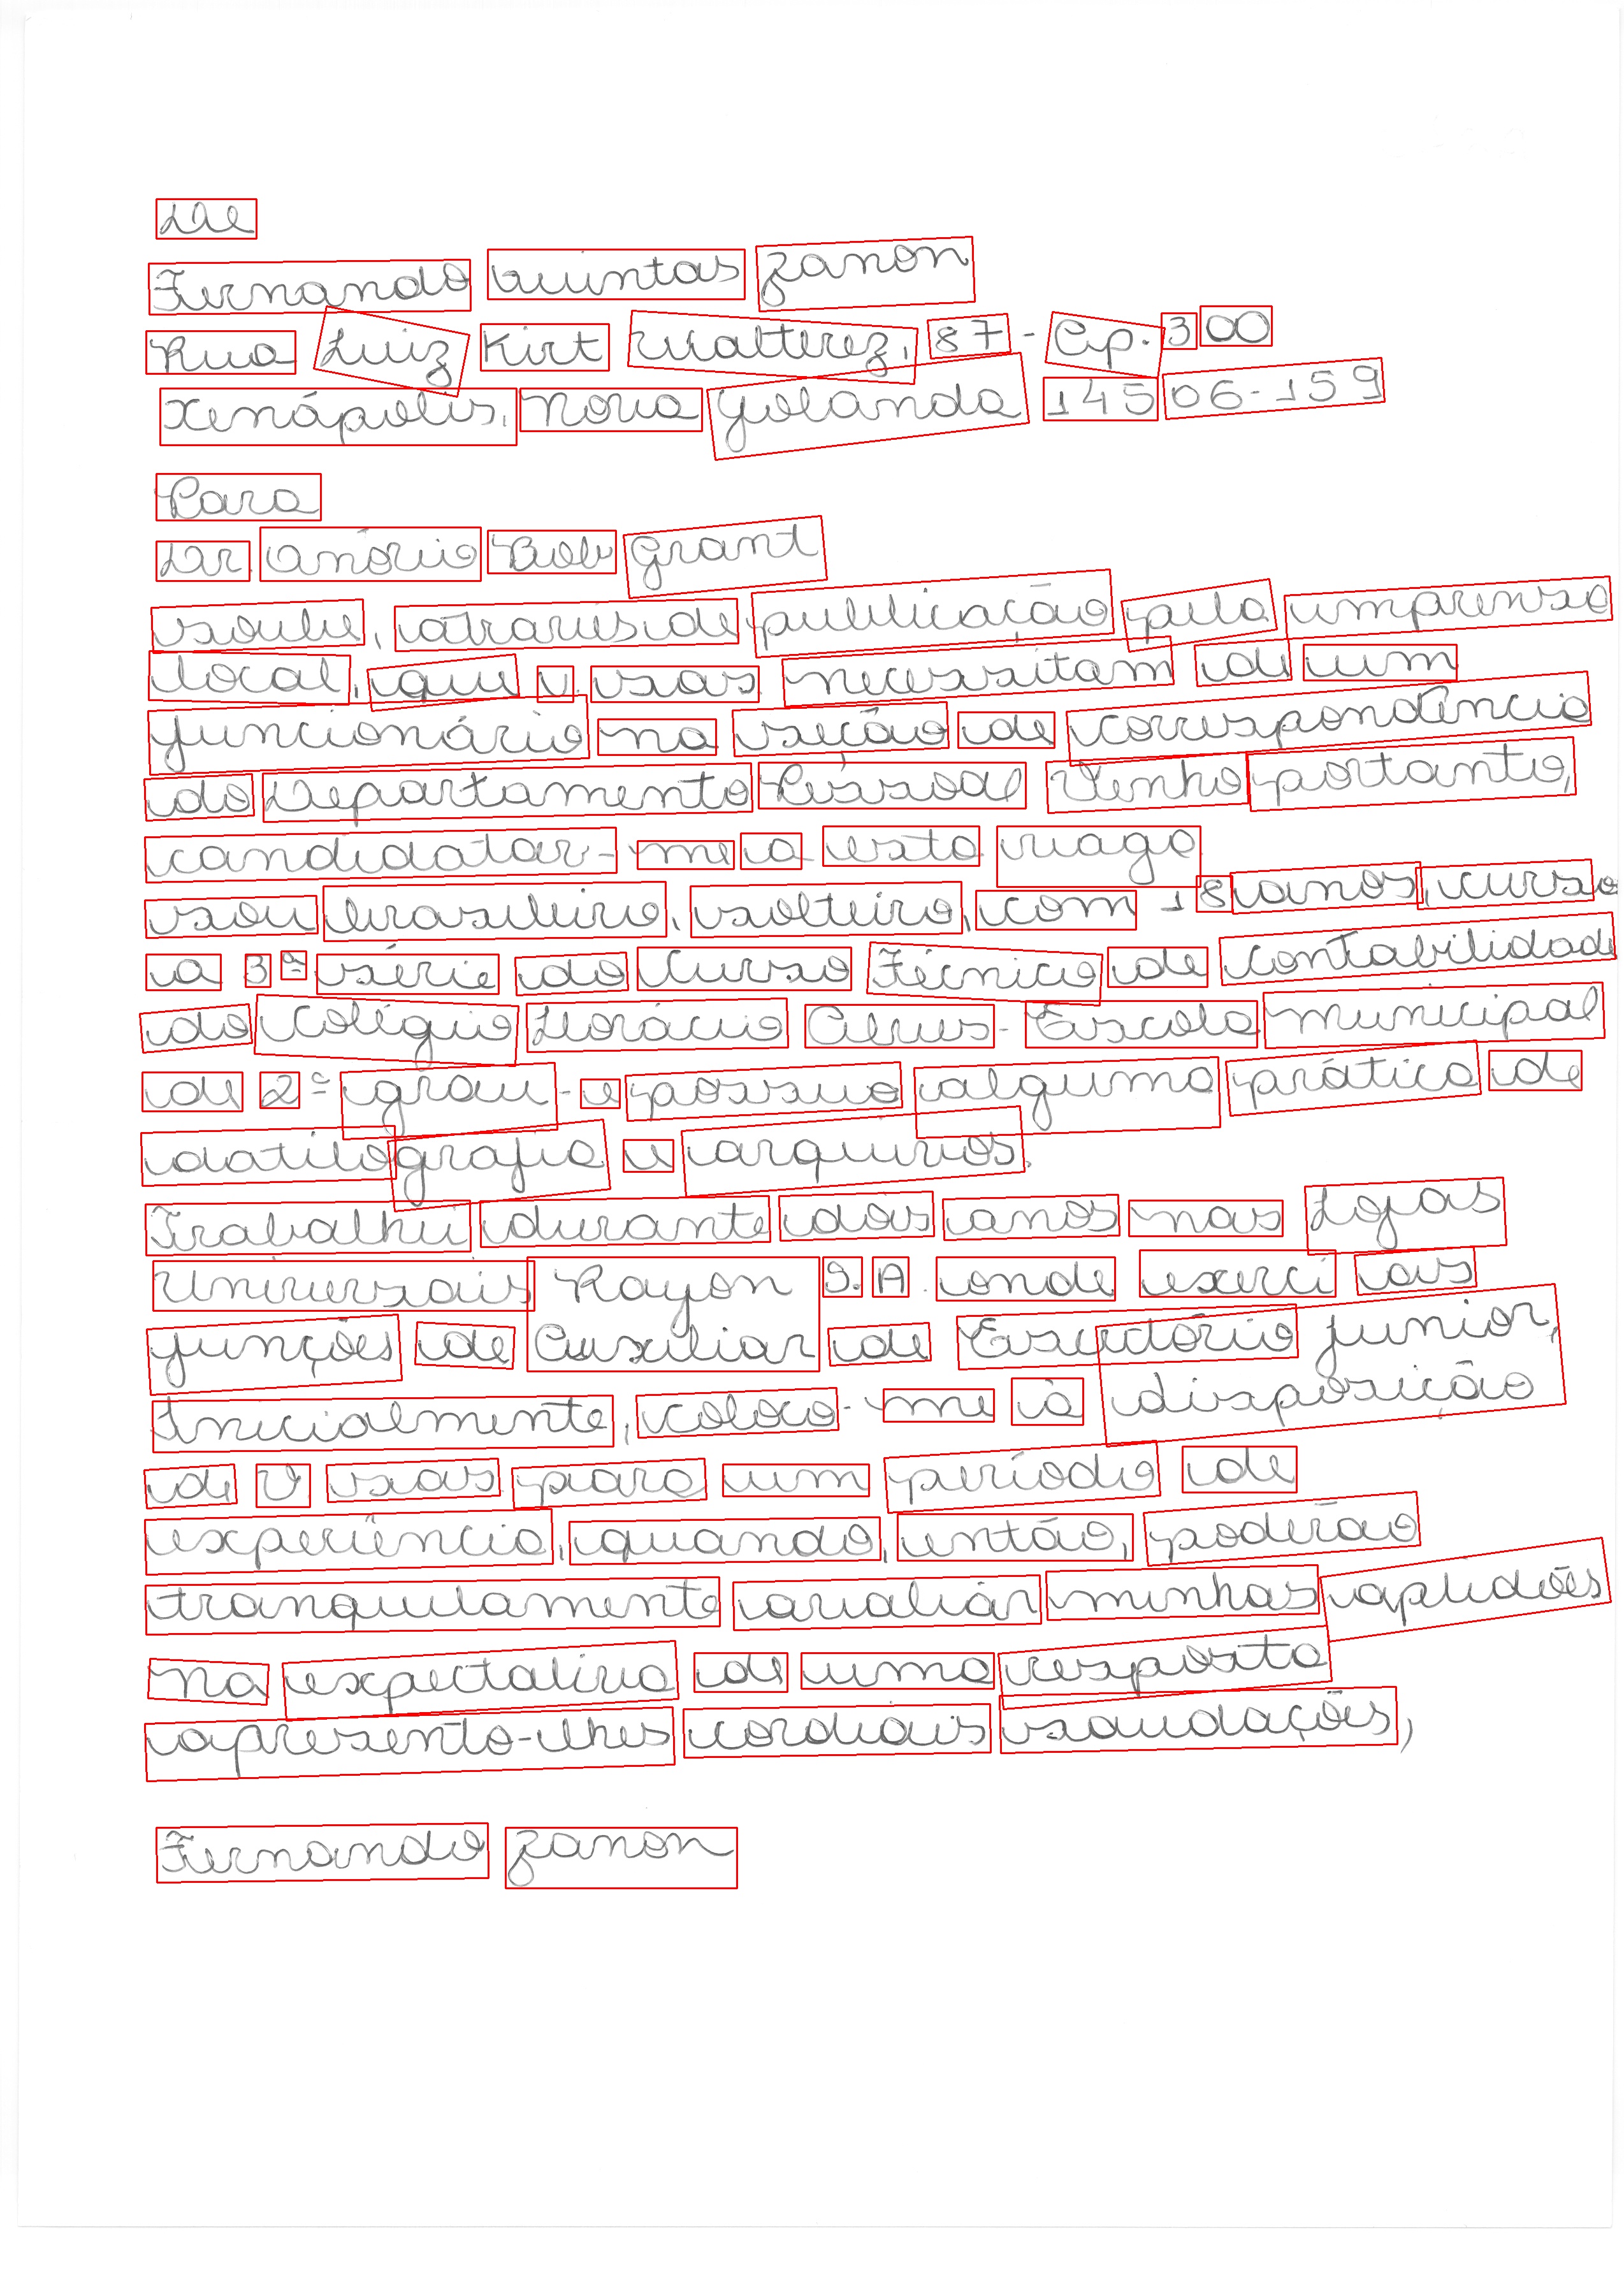 De
Fernando Quintas Zanon
Rua Luiz Kirt Walterez, 87 - Ap. 300
Xenápolis, Nova Yolanda 14506-159
Para
Dr. Anório Bob Grant
soube, através de publicação pela imprensa
local, que v. sas. necessitam de um
funcionário na seção de correspondência
do Departamento Pessoal Venho portanto,
candidatar-me a esta vaga
sou brasileiro, solteiro, com 18 anos, curso
a 3ª série do Curso Técnico de Contabilidade
do Colégio Horácio Alves - Escola Municipal
de 2º grau - e possuo alguma prática de
datilografia e arquivos.
Trabalhei durante dois anos nas Lojas
Universais Rayon S.A. onde exerci as
funções de Auxiliar de Escritório Junior,
Inicialmente, coloco-me à disposição
de V sas para um período de
experiência, quando, então, poderão
tranquilamente avaliar minhas aptidões
Na expectativa de uma resposta
apresento-lhes cordiais saudações,
Fernando Zanon